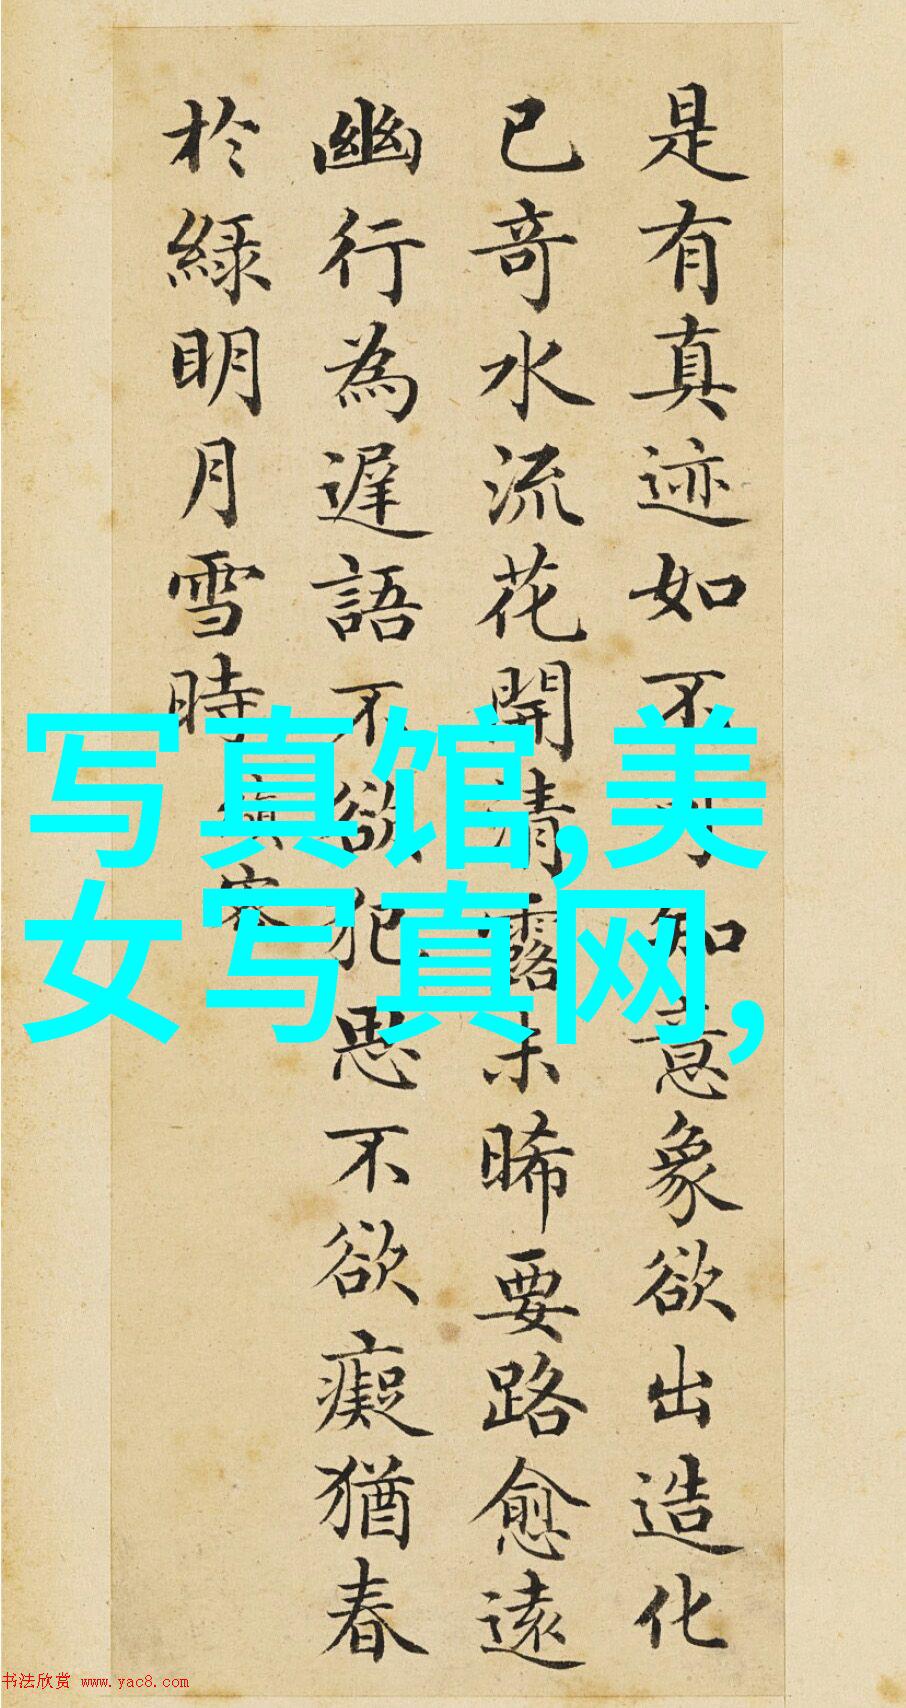 是有真迹如不可知意象欲出造化
已奇水流花開清露未晞要路愈遠
幽行為遲語不欲犯思不欲癡猶春
於綠明月雪時
縝密
写真馆,美
女写真网,
书法欣赏 www.yac8.com